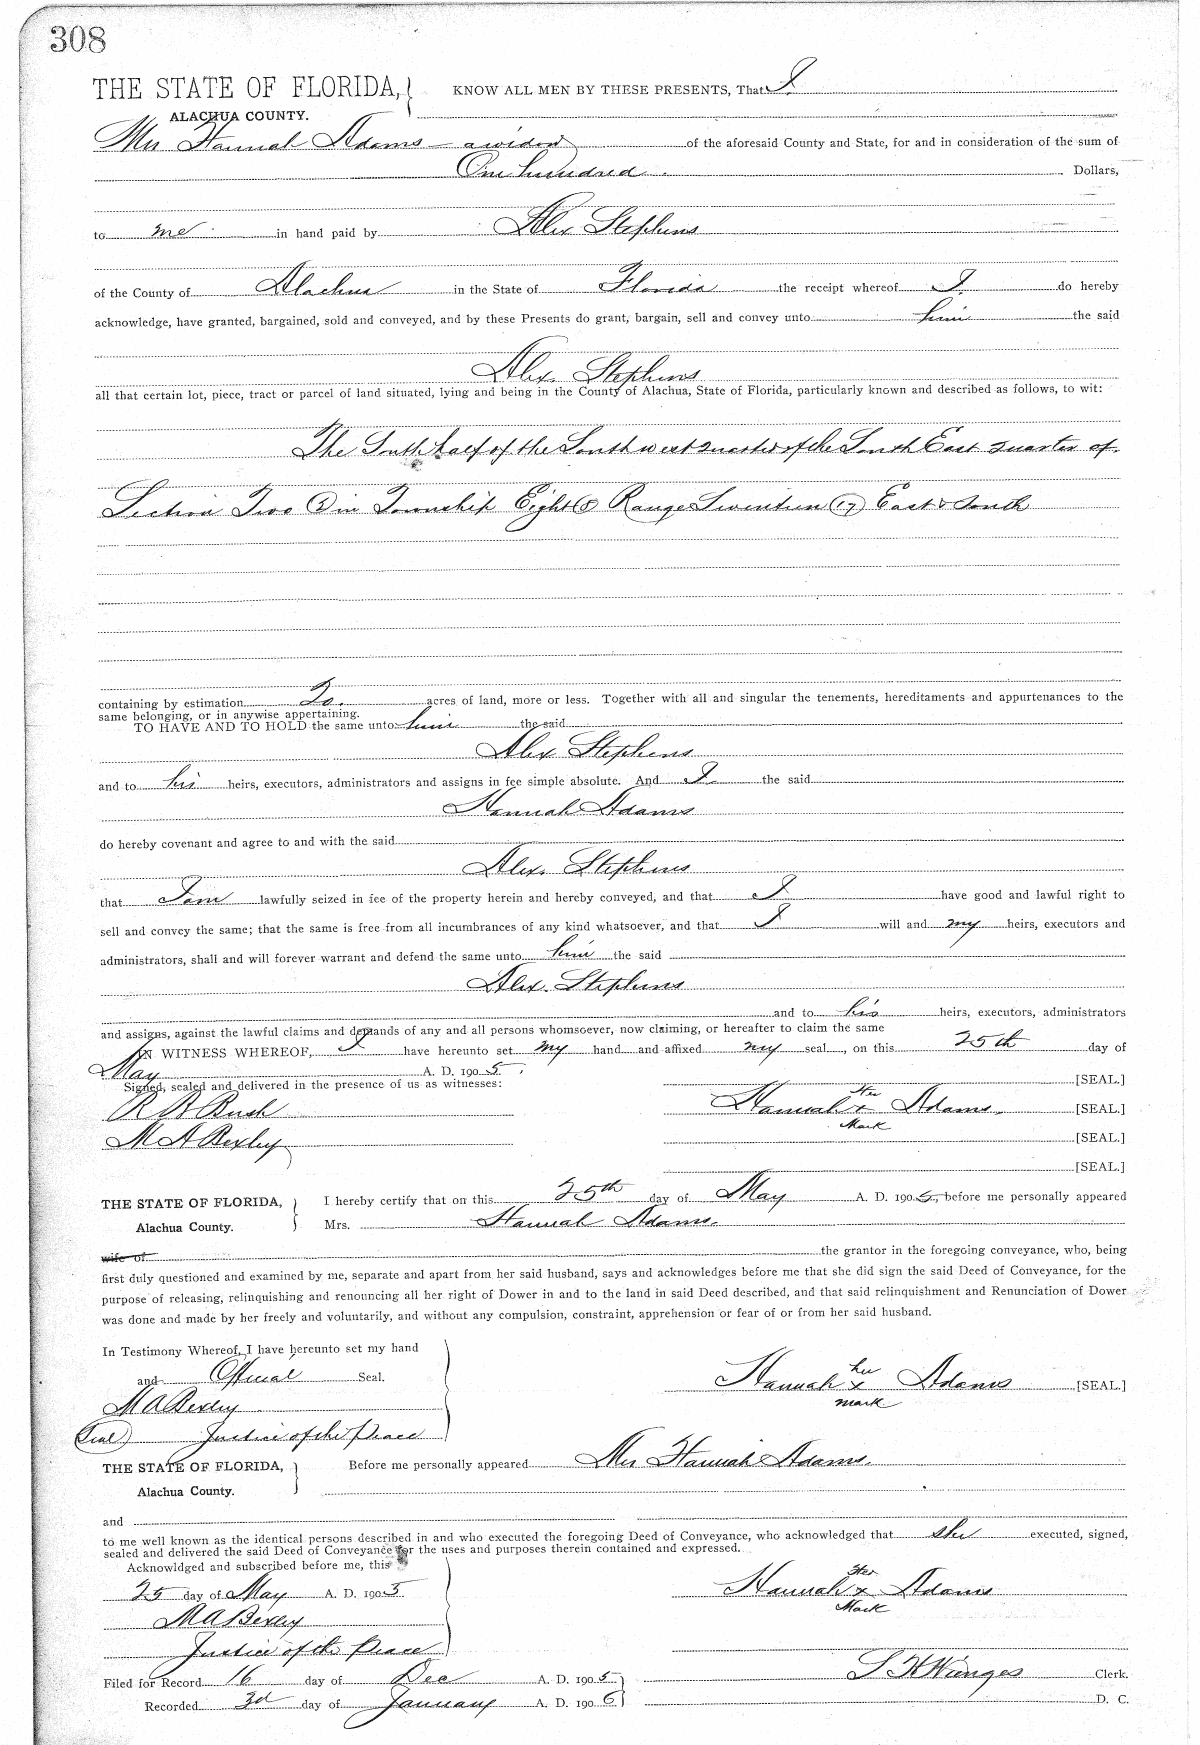 308
THE STATE OF FLORIDA, KNOW ALL MEN BY THESE PRESENTS, That I
ALACHUA COUNTY.
Mrs Hannah Adams – a widow of the aforesaid County and State, for and in consideration of the sum of
One hundred Dollars,
to me in hand paid by Alex Stephens
of the County of Alachua in the State of Florida the receipt whereof I do hereby
acknowledge, have granted, bargained, sold and conveyed, and by these Presents do grant, bargain, sell and convey unto him the said
Alex. Stephens
all that certain lot, piece, tract or parcel of land situated, lying and being in the County of Alachua, State of Florida, particularly known and described as follows, to wit:
The South half of the South west quarter of the South East quarter of
Section Two (2) in Township Eight (8) Range Seventeen (17) East & South
containing by estimation 20. acres of land, more or less. Together with all and singular the tenements, hereditaments and appurtenances to the
same belonging, or in anywise appertaining.
TO HAVE AND TO HOLD the same unto him the said
Alex Stephens
and to his heirs, executors, administrators and assigns in fee simple absolute. And I the said
Hannah Adams
do hereby covenant and agree to and with the said
Alex. Stephens
that I am lawfully seized in fee of the property herein and hereby conveyed, and that I have good and lawful right to
sell and convey the same; that the same is free from all incumbrances of any kind whatsoever, and that I will and my heirs, executors and
administrators, shall and will forever warrant and defend the same unto him the said
Alex. Stephens
and to his heirs, executors, administrators
and assigns, against the lawful claims and demands of any and all persons whomsoever, now claiming, or hereafter to claim the same
IN WITNESS WHEREOF, I have hereunto set my hand and affixed my seal, on this 25th day of
May A. D. 1905.
Signed, sealed and delivered in the presence of us as witnesses: [SEAL.]
Her
R B Bush Hannah x Adams. [SEAL.]
Mark
M A Bexley [SEAL.]
[SEAL.]
THE STATE OF FLORIDA, I hereby certify that on this 25th day of May A. D. 1905, before me personally appeared
Alachua County. Mrs. Hannah Adams.
wife of the grantor in the foregoing conveyance, who, being
first duly questioned and examined by me, separate and apart from her said husband, says and acknowledges before me that she did sign the said Deed of Conveyance, for the
purpose of releasing, relinquishing and renouncing all her right of Dower in and to the land in said Deed described, and that said relinquishment and Renunciation of Dower
was done and made by her freely and voluntarily, and without any compulsion, constraint, apprehension or fear of or from her said husband.
In Testimony Whereof, I have hereunto set my hand
her
and Official Seal. Hannah x Adams [SEAL.]
mark
M A Bexley
(Seal) Justice of the Peace
THE STATE OF FLORIDA, Before me personally appeared Mrs Hannah Adams.
Alachua County.
and
to me well known as the identical persons described in and who executed the foregoing Deed of Conveyance, who acknowledged that she executed, signed,
sealed and delivered the said Deed of Conveyance for the uses and purposes therein contained and expressed.
Acknowldged and subscribed before me, this
Her
25 day of May A. D. 1905 Hannah x Adams
Mark
M A Bexley
Justice of the Peace
Filed for Record 16 day of Dec A. D. 1905 S H Wienges Clerk.
Recorded 3d day of January A. D. 1906 D. C.